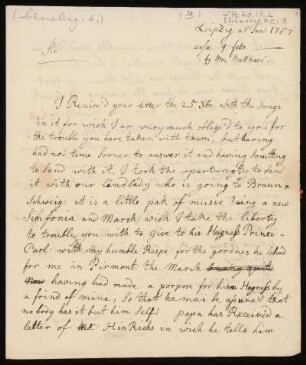 (Schmeling 6.)
Leipzig 21 Jan: 1767
answ 9 febr
by Mrs
Sr
I Receiv'd your letter the 25 Xbr, with the Songs
in it for wish I am very much oblige'd to you for
the trouble you are taken with them, but having
had not time Sorner to answer it and having Somthing
to Send with it, I took the opartunety to Send
it with our Landlady who is going to Braun=
Schweig: it is a little pak of music being a new
Sinfonia and Marsh wish I take the liberty
to trouble you with to Give to his Hagness Prince
Carl with my humble Respe for the goodnes he Shad
for me in Pirmont the Marsh
having had made a porpose for him Hagness by
a frind of mine, So that he mai be asured that
nobody has it but him Selfs papa has Received a
letter of Mr HinRichs in wish he tells him